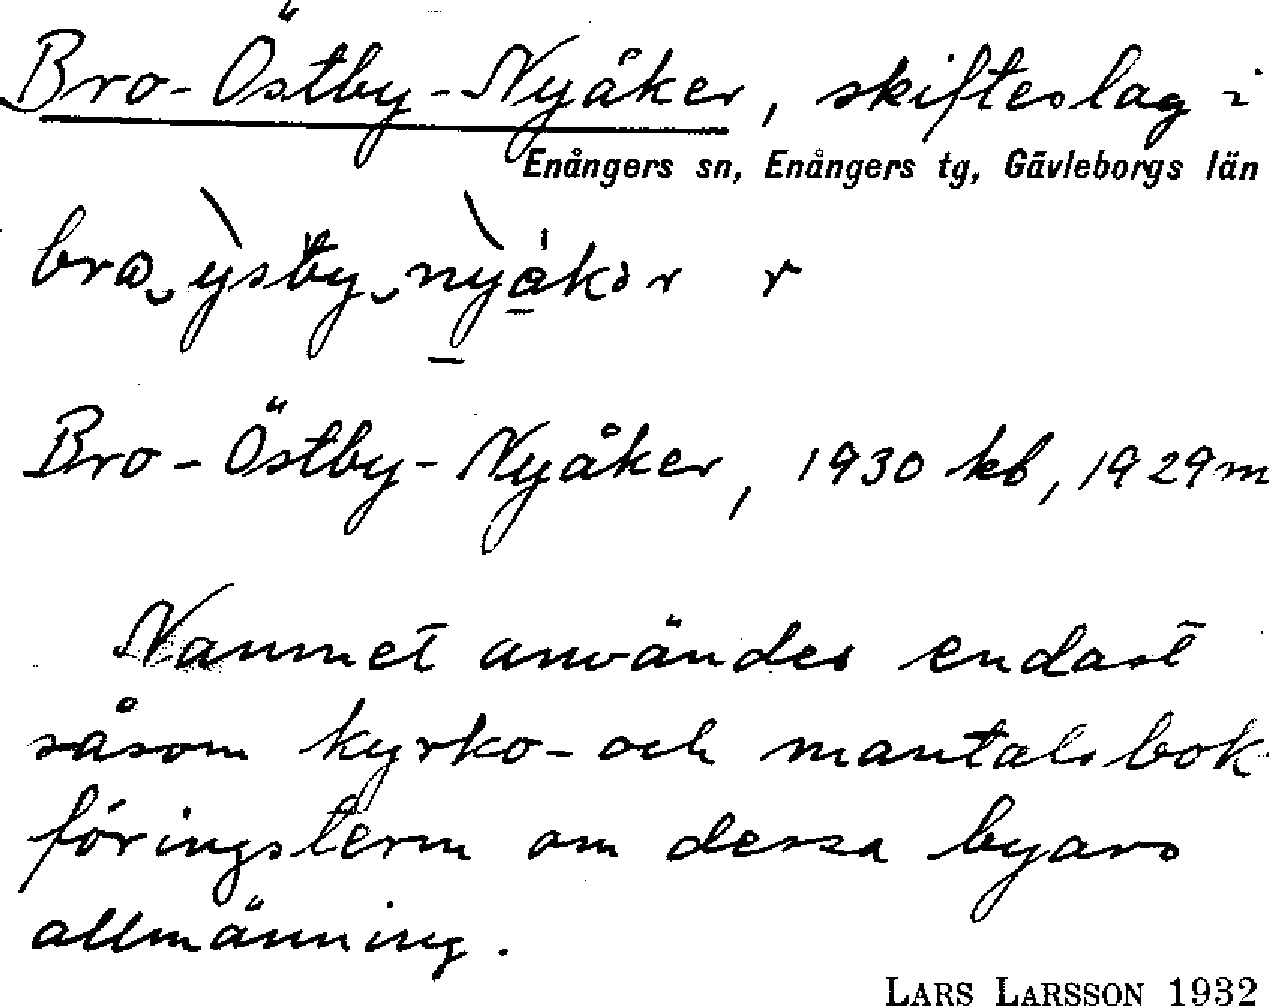 Bro-Östby-Nyåker, skifteslag i
Enångers sn, Enångers tg, Gävleborgs län
r
Bro-Östby-Nyåker, 1930 kb, 1929 m
Namnet användes endast
såsom kyrko- och mantalsbok-
föringsterm om dessa byars
allmänning.
LARS LARSSON 1932